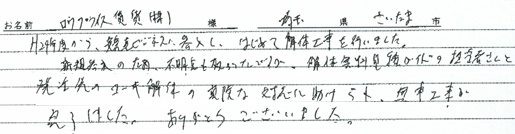 お名前 ロープライス賃貸(株) 様 埼玉 県 さいたま 市
H29年度から、競売ビジネスに参入し、はじめて解体工事を行いました。
新規参入のため、不明点も多かったですが、解体無料見積ガイドの担当者さんと
発注先の 解体の 対応に助けられ、無事工事が
完了しました。ありがとうございました。